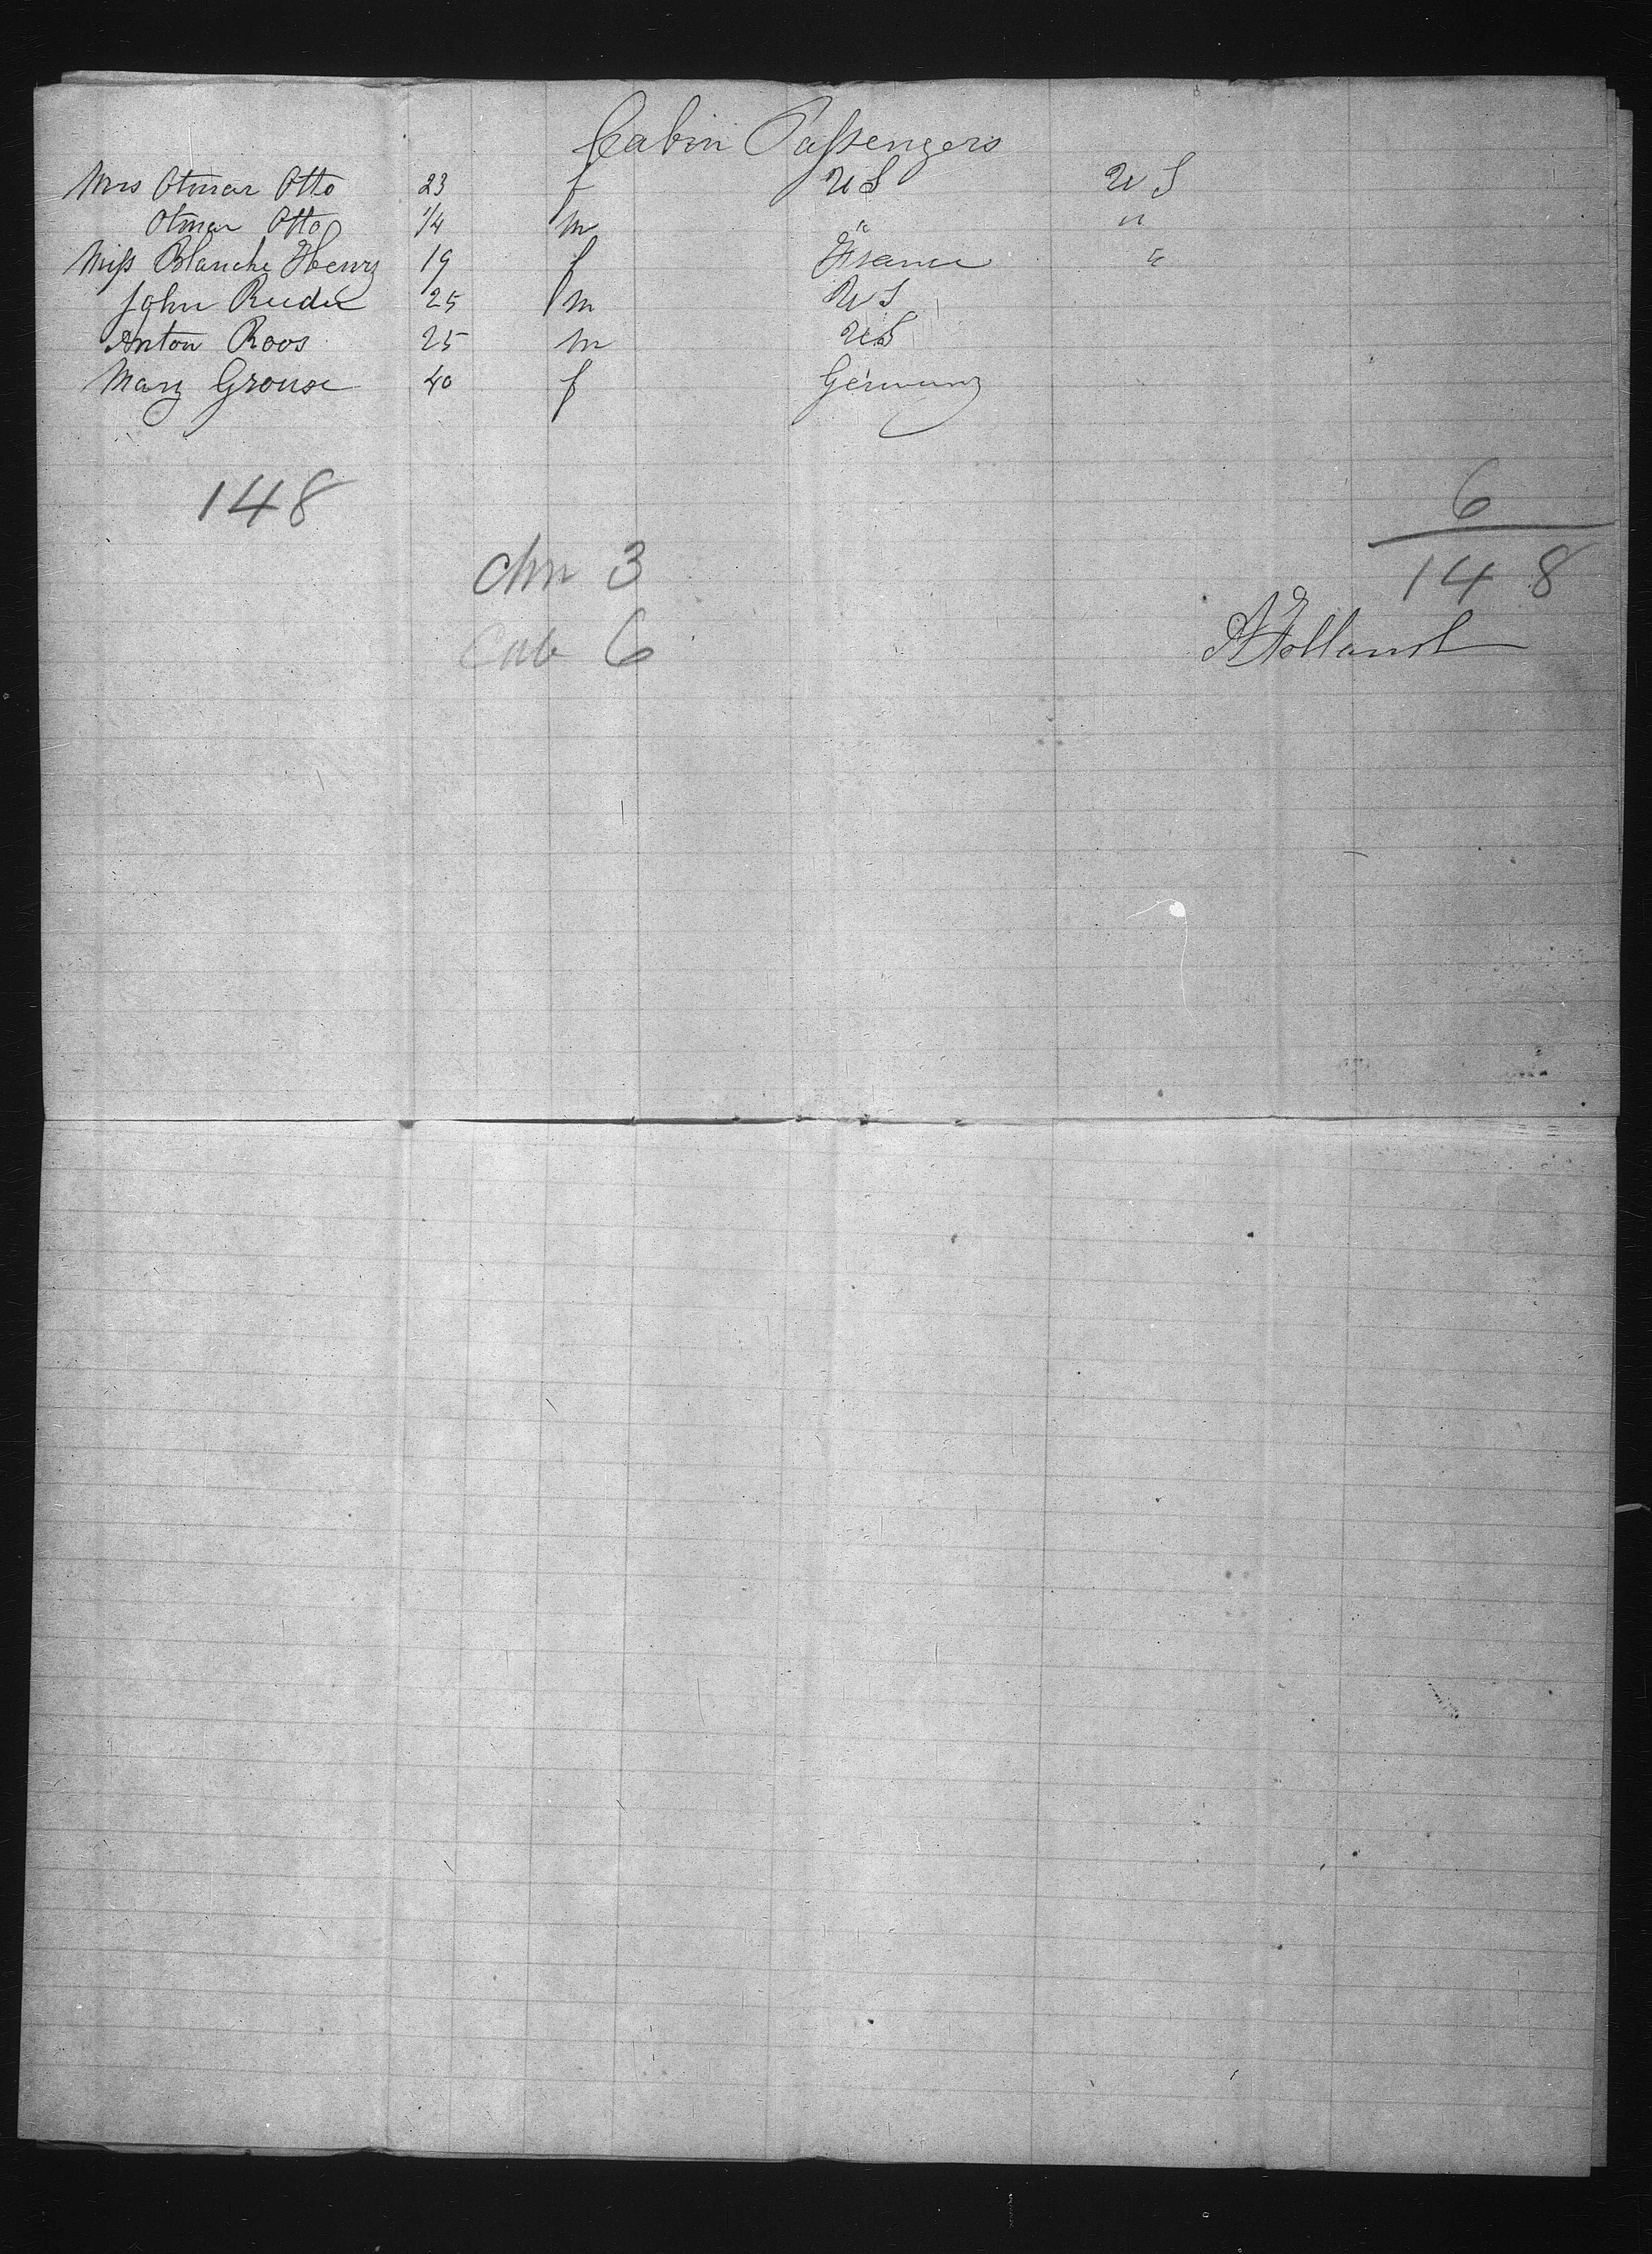 Cabin Passengers
Mrs Otmar Otto 23 f US US
Otmar Otto 1/4 m " "
Miss Blanche Henry 19 f France "
John Reeder 25 m US
Anton Roos 25 m US
Mary Grouse 40 f Germany
148 6
148
chn 3
Cab 6